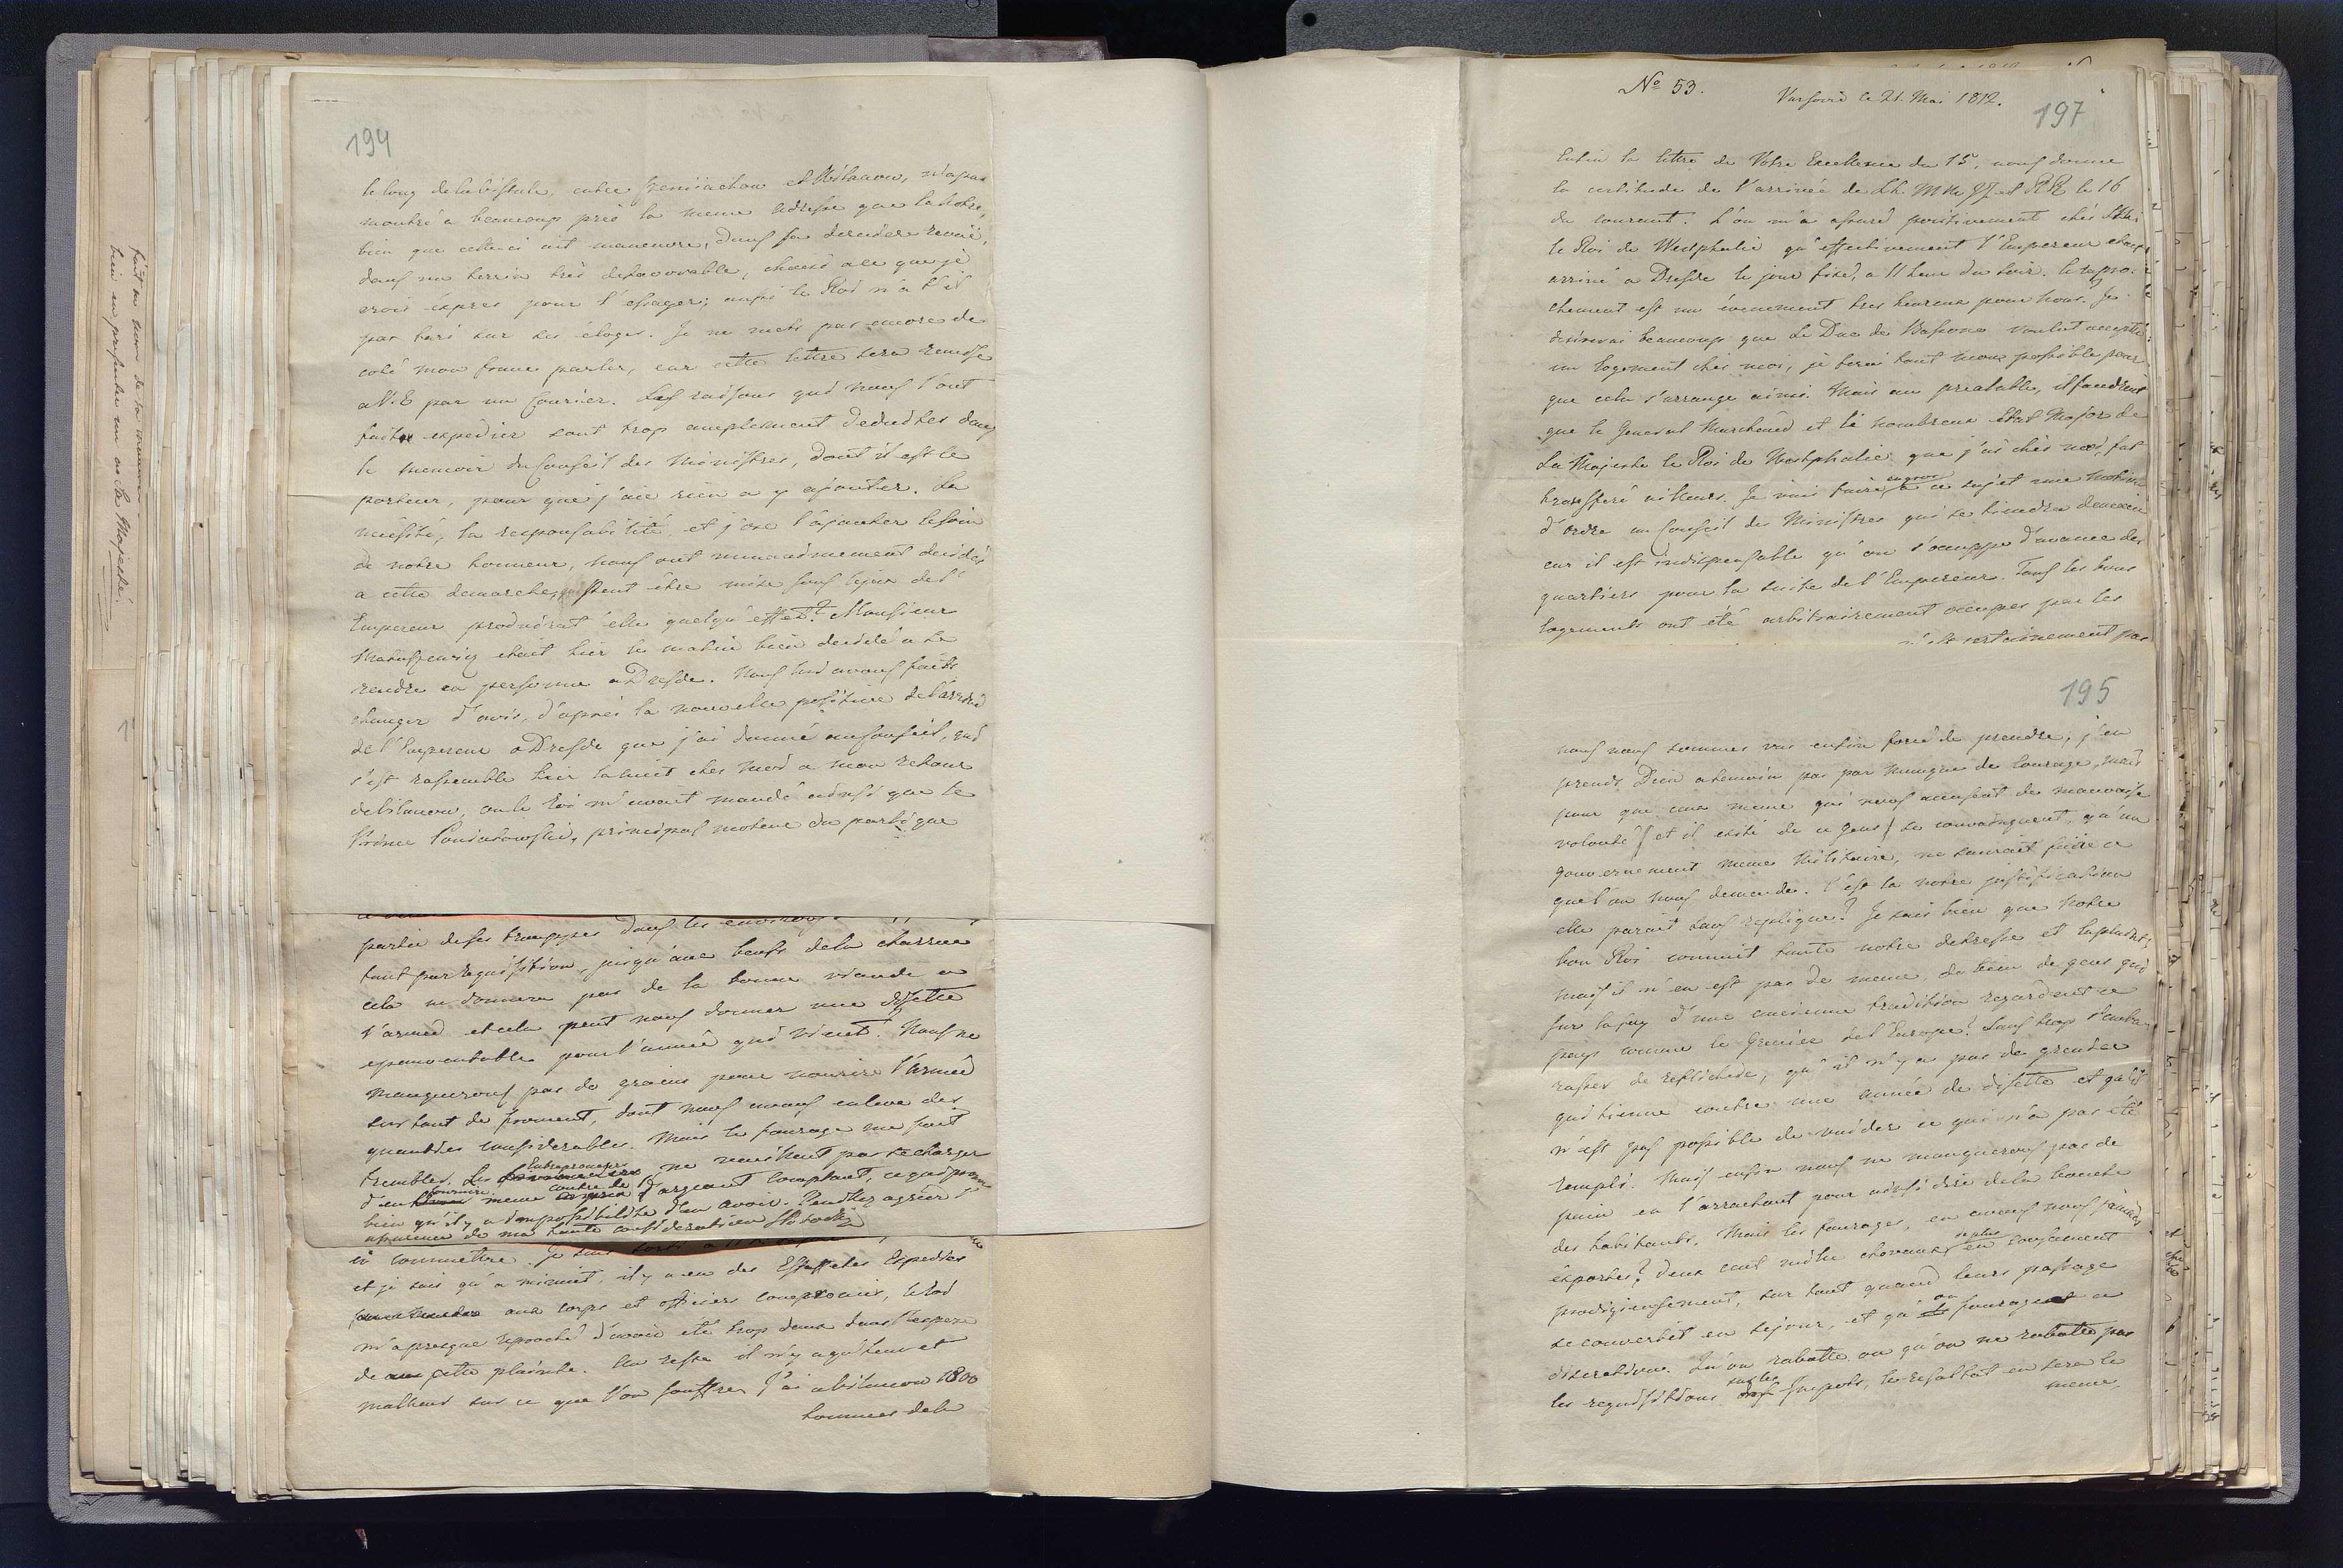 194
le long de la Vistule, entre et Wilanow, n'a pas
montré a beaucoup près la meme adresse que la notre,
bien que celle-ci ait maneuvré, dans sa derniere revue,
dans un terrin très defavorable, choisi a ce que je
crois exprès pour l'essayer; aussi le Roi n'a t'il
pas tari sur ses éloges. Je ne mets pas encore de
coté mon franc parler, car cette lettre sera remise
a V.E par un Courier. Les raisons qui nous l'ont
fait expedier sont trop amplement deduites dans
le memoir du Conseil des Ministres, dont il est le
porteur, pour que j'aie rien a y ajouter. La
nécéssité, la responsabilité et j'ose l'ajouter le soin
de notre honneur, nous ont unanimement decidés
a cette demarche, peut être mise sous les yeux de l'
Empereur produirat elle quelqu'effet? Monsieur
Matuszewicz etait hier le matin bien decidé a se
rendre en personne a Dresde. Nous lui avons faits
changer d'avis, d'après la nouvelle positive de l'arrivé
de l'Empereur a Dresde que j'ai donné au Conseil, qui
s'est rassemblé hier la nuit chez moi a mon retour
de Wilanow, ou le Roi m'avait mandé ainsi que le
Prince Poniatowski, principal moteur du parti que
partie de ses trouppes dans les environs
tout par requisition, jusqu'aux beufs de la charrue
cela ne donnera pas de la bonne viande a
l'armée et cela peut nous donner une disette
epouventable pour l'année qui vient! Nous ne
manquerons pas de grains pour nourire l'armée
sur tout de froment, dont nous avons enlevé des
quantités considerables. Mais le fourage me fait
trembler. Les Entrepreneurs ne veuillent pas se charger
d'en fournire meme contre de l'argent comptant, ce qui prouve
bien qu'il y a impossibilité d'en avoir. Veuillez agréer l'
assurence de ma haute consideration
commettre. Je suis sorti a
et je sais qu'a minuit, il y a eu des Estaffetes expediés
aux corps et officiers compromis, le Roi
m'a presque reproché d'avoir eté trop doux dans l'exposé
de cette plainte. Au reste il n'y a qu'heur et
malheur sur ce que l'on souffre. J'ai a Wilanow 1800
hommes de la
tein en presenter un a Sa Majesté.
No 53. Varsovie ce 21. Mai 1812.
197
Enfin la lettre de Votre Excellence du 15, nous donne
la certitude de l'arrivée de LL. MM. II et RR le 16
du courant. L'on m'a assuré positivement chés
le Roi de Westphalie qu'effectivement l'Empereur etait
arrivé a Dresde le jour fixé, a 11 heure du soir. Ce rapro-
chement est un évenement tres heureux pour nous. Je
desirerai beaucoup que Le Duc de Bassano voulut accepter
un logement chés moi, je ferai tout mon possible pour
que cela s'arrange ainsi. Mais au prealable, il faudrait
que le General Marchand et le nombreux Etat Major de
Sa Majesté le Roi de Westphalie que j'ai chés moi, fut
transferé ailleurs. Je vais faire encore a ce sujet une motion
d'ordre au Conseil des Ministres qui se tiendra demain
car il est indispensable qu'on s'occuppe d'avance des
quartiers pour la suite de l'Empereur. Tous les bons
logements ont été arbitrairement occupés par les
certainement pas
195
nous nous sommes vus enfin forcé de prendre, j'en
prends Dieu a temoin pas par manque de courage, mais
pour que ceux meme qui nous accusent de mauvaise
volonté (et il existe de ce gens) se convainquent, qu'un
gouvernement meme Militaire, ne saurait faire ce
que l'on nous demande. C'est la notre justification
elle parait sans replique? Je sais bien que notre
bon Roi connait toute notre detresse et
mais il n'en est pas de meme, de bien de gens qui
sur la foy d'une ancienne tradition regardent ce
pays comme le Grenier de l'Europe! Sans trop s'emba-
rasser de reflechire, qu'il n'y a pas de grenier
qui tienne contre une année de disette et qu'il
n'est pas possible de vuider ce qui n'a pas eté
rempli. Mais enfin nous ne manquerons pas de
pain en l'arrachant pour ainsi dire de la bouche
des habitants. Mais les fourages, en avons nous jamais
exportés? Deux cent mille chevaux de plus en consument
prodigieusement, sur tout quand leurs passage
se convertit en sejour, et qu'on fourage a
discretion. Qu'on rabatte ou qu'on ne rabatte pas
les requisitions sur les Impots, le resultat en sera le
meme